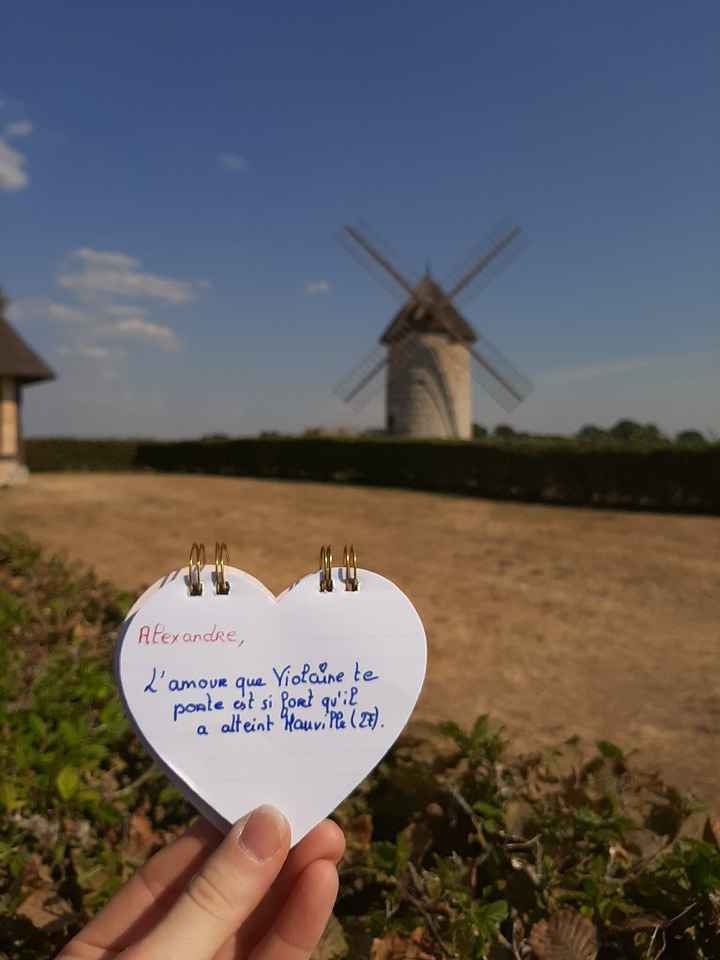 Alexandre,
L'amour que Violaine te
porte est si fort qu'il
a atteint Hauville (27).